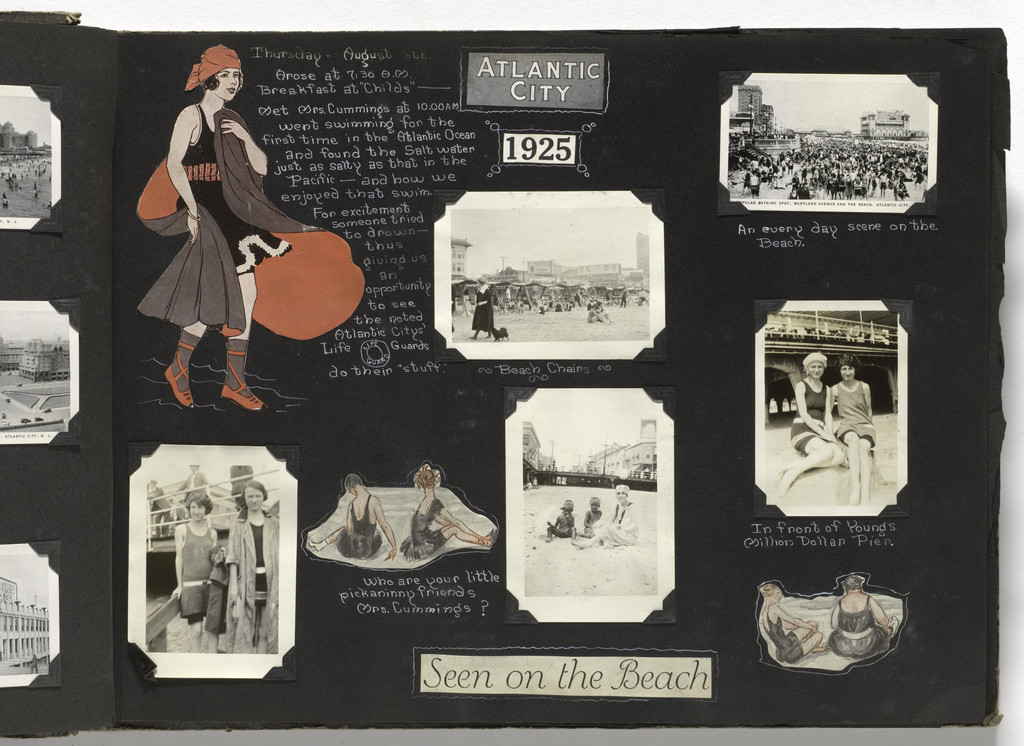 Thursday - August 6th.
Arose at 7:30 A.M.
Breakfast at "Childs" —
Met Mrs. Cummings at 10:00 AM
went swimming for the
first time in the Atlantic Ocean
and found the Salt water
just as salty as that in the
Pacific — and how we
enjoyed that swim.
For excitement
someone tried
to drown —
thus
giving us
an
opportunity
to see
the noted
Atlantic Citys'
Life LIFE GUARD Guards
do their "stuff."
ATLANTIC
CITY
1925
Beach Chairs
POPULAR BATHING SPOT, MARYLAND AVENUE AND THE BEACH, ATLANTIC CITY
An every day scene on the
Beach.
In front of Youngs
Million Dollar Pier.
Who are your little
pickaninny friends
Mrs. Cummings?
Seen on the Beach
N. J.
ATLANTIC CITY, N. J.